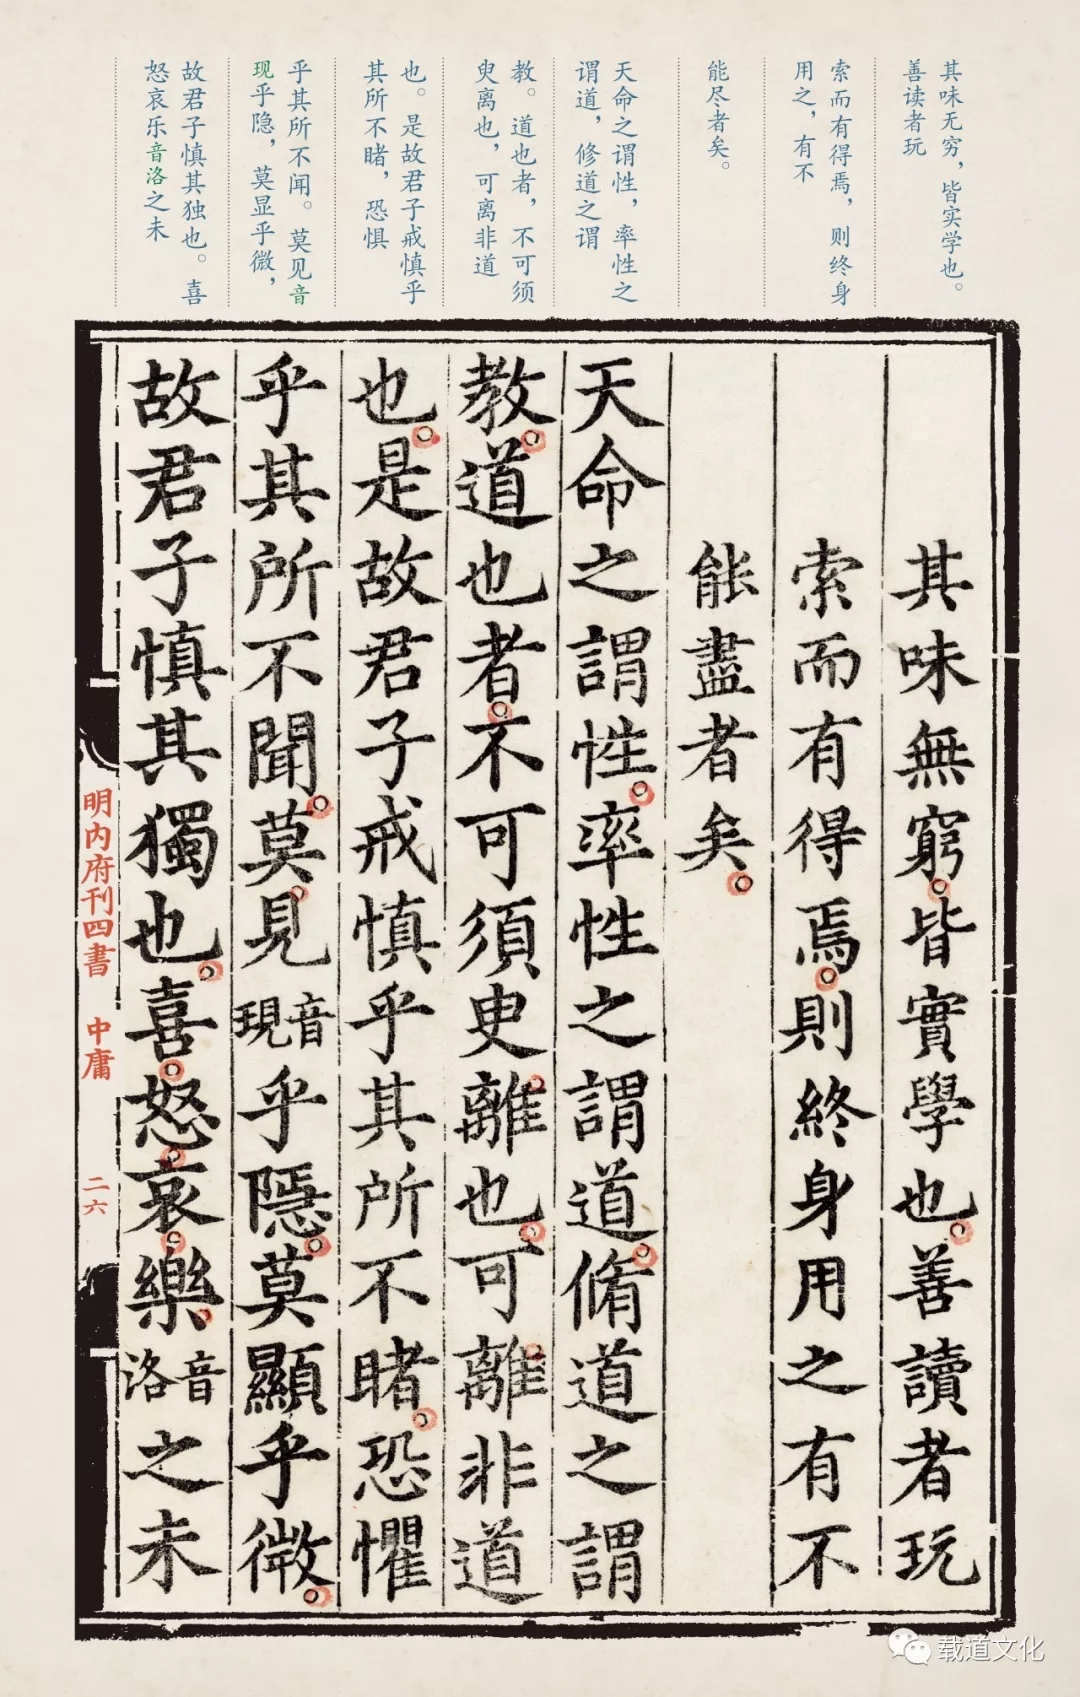 其味无穷，皆实学也。
善读者玩
索而有得焉，则终身
用之，有不
能尽者矣。
天命之谓性，率性之
谓道，修道之谓
教。道也者，不可须
臾离也，可离非道
也。是故君子戒慎乎
其所不睹，恐惧
乎其所不闻。莫见音
现乎隐，莫显乎微，
故君子慎其独也。喜
怒哀乐音洛之未
其味無窮。皆實學也。善讀者玩
索而有得焉。則終身用之有不
能盡者矣。
天命之謂性。率性之謂道。脩道之謂
教。道也者。不可須臾離也。可離非道
也。是故君子戒慎乎其所不睹。恐懼
乎其所不聞。莫見音現乎隱。莫顯乎微。
故君子慎其獨也。喜。怒。哀。樂。音洛之未
明内府刊四書 中庸 二六
载道文化